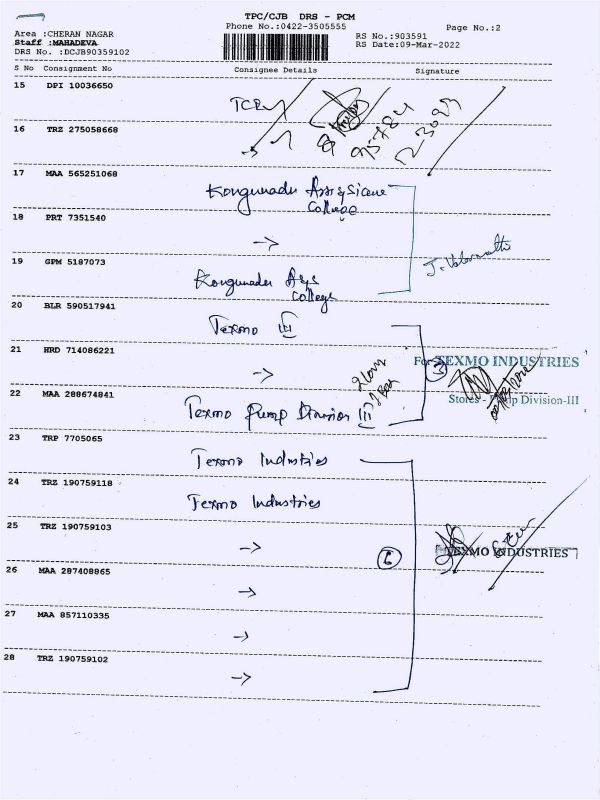 TPC/CJB DRS - PCM
Phone No.:0422-3505555
Page No.:2
Area :CHERAN NAGAR
RS No.:903591
Staff :MAHADEVA
RS Date:09-Mar-2022
DRS No. :DCJB90359102
S No Consignment No Consignee Details Signature
15 DPI 10036650
16 TRZ 275058668
17 MAA 565251068
Kongunadu Arts & Sicene
College
18 PRT 7351540
19 GPM 5187073
Kongunadu Arts
College
20 BLR 590517941
Texmo III
21 HRD 714086221
For TEXMO INDUSTRIES
22 MAA 288674841
Stores - Pump Division-III
Texmo Pump Division III
3
23 TRP 7705065
Texmo Industries
24 TRZ 190759118
Texmo Industries
25 TRZ 190759103
6
TEXMO INDUSTRIES
26 MAA 287408865
27 MAA 857110335
28 TRZ 190759102